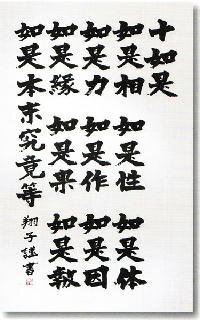 十如是
如是相 如是性 如是体
如是力 如是作 如是因
如是縁 如是果 如是報
如是本末究竟等
翔子謹書